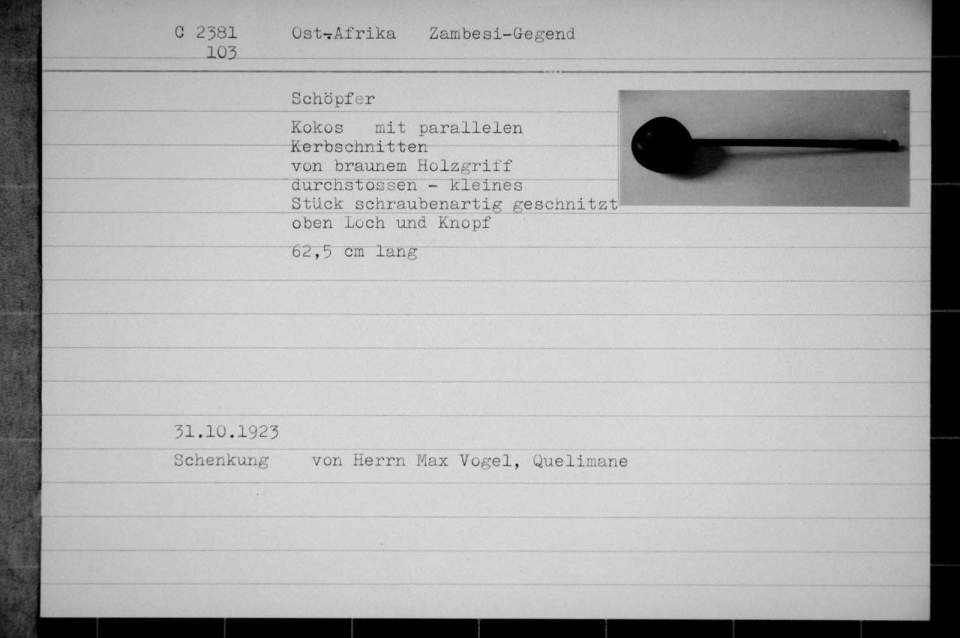 C 2381 Ost-Afrika Zambesi-Gegend
103
Schöpfer
Kokos mit parallelen
Kerbschnitten
von braunem Holzgriff
durchstossen - kleines
Stück schraubenartig geschnitzt
oben Loch und Knopf
62,5 cm lang
31.10.1923
Schenkung von Herrn Max Vogel, Quelimane